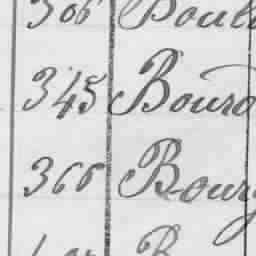 306 Boul
345 Bouro
366 Bourg